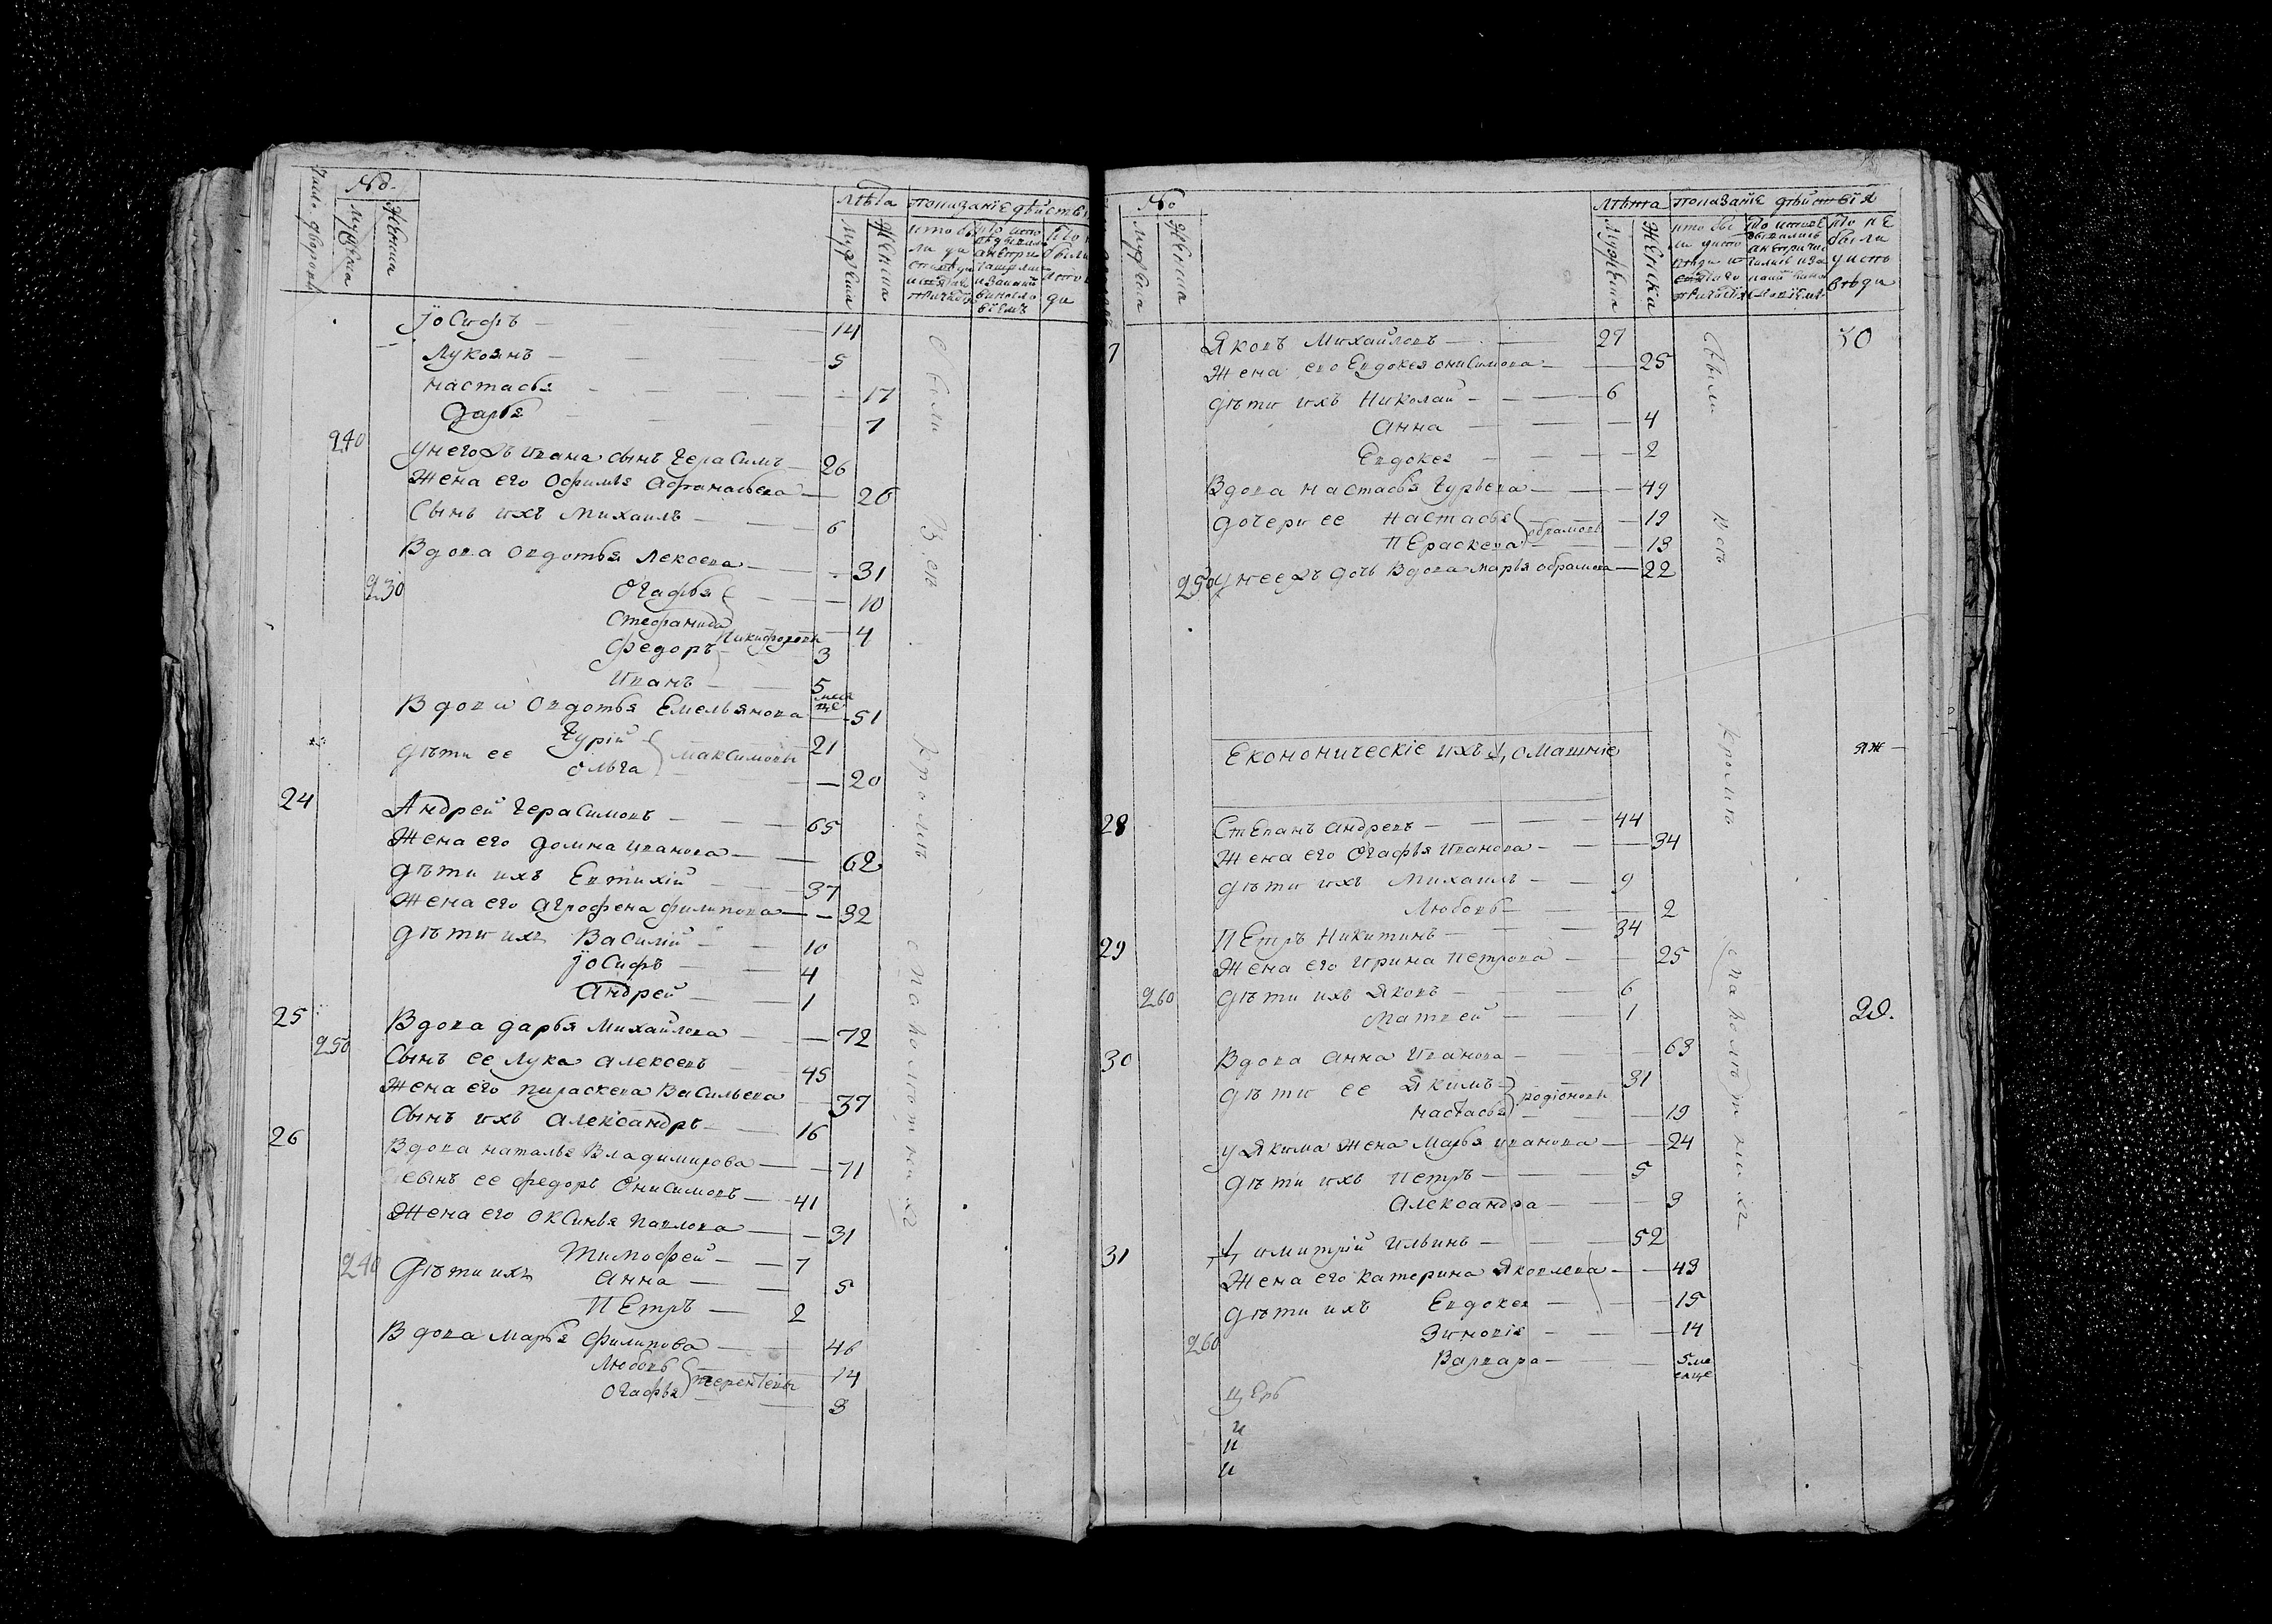 Число дворовъ
No.
Мужеска
Женска
Лѣта
Мужеска
Женска
показанїе дѣйств
Іосифъ — 14
Лукоянъ — 5
настасья — 17
Дарья — 7
240
у него Ж Ивана сынъ Герасимъ — 26
Жена его Офимья Афонасьева — 26
Сынъ ихъ Михаилъ — 6
Вдова Овдотья Лексева — 31
230
Огафья — 10
Стефанида — 4
Никифоровы
Федоръ — 3
Иванъ — 5
Вдова Овдотья Емельянова — 51
дѣти ее Гурій — 21
Максимовы
Ольга — 20
24 Андрей Герасимовъ — 65
Жена его Домна Иванова — 62
Дѣти ихъ Евтихій — 37
Жена его Агрофена Филипова — 32
Дѣти ихъ Василій — 10
Іосифъ — 4
Андрей — 1
25 Вдова Дарья Михайлова — 72
250
Сынъ ее Лука Алексевъ — 45
Жена его Параскева Васильева — 37
Сынъ ихъ Александръ — 16
26
Вдова наталья Владимирова — 71
сынъ ее федоръ Онисимовъ — 41
Жена его Оксинья Павлова — 31
240
Дѣти ихъ Тимофей — 7
Анна — 5
ПЕтръ — 2
Вдова Марья Филипова — 46
Любовь — 14
Терентевы
Огафья — 3
Были Всѣ кромѣ малолѣтныхъ
No
Мужеска
Женска
Лѣта
Мужеска
Женска
показанїе дѣйствїя
7 Яковъ Михайловъ — 27
30
Жена его Евдокея Онисимова — 25
Дѣти ихъ Николай — 6
Анна — 4
Евдокея — 2
Вдова Настасья Гурьева — 49
Дочери ее настасья — 19
обрамовы
ПЕраскева — 13
250 у нее Ж дочь Вдова марья обрамова — 22
Были Всѣ кромѣ малолѣтныхъ
Економическіе ихъ Домашніе
28 Степанъ Андревъ — 44
Жена его Огафья Иванова — 34
Дѣти ихъ Михаилъ — 9
Любовь — 2
29 ПЕтръ Никитинъ — 34
Жена его Ирина Петрова — 25
260 Дѣти ихъ Яковъ — 6
Матвей — 1
20.
30 Вдова Анна Иванова — 63
Дѣти ее Якимъ — 31
родіоновы
настасья — 19
у Якима Жена Марья Иванова — 24
Дѣти ихъ Петръ — 5
Александра — 3
31 Димитрій Ильинъ — 52
Жена его Катерина Яковлева — 43
Дѣти ихъ Евдокея — 15
260
Зиновія — 14
Варвара — 5 ме
сяце
цЕрь
и
и
и